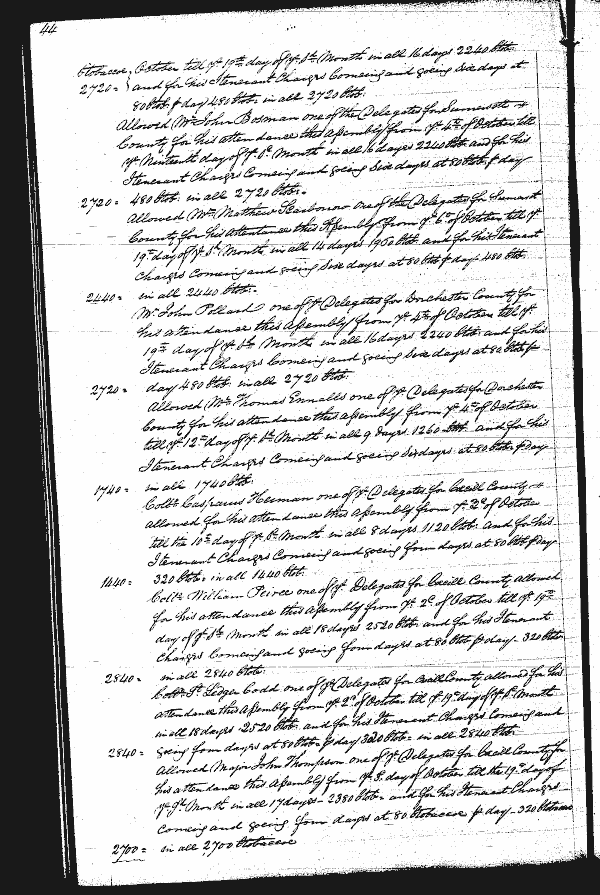 44
tobaccoe, October till ye 19th day of ye sd Month in all 16 days 2240 lbtb.
2720 = and for his Itenerant Charges Comeing and goeing Six days at
80 lbtb p day 480 lbtb: in all 2720 lbtb:
Allowed Mr John Bosman one of the Delegates for Sumersett
County for his attendance this Assembly from ye 4th of October till
ye Ninteenth day of ye sd Month in all 16 days 2240 lbtb and for his
Itenerant Charges Comeing and goeing Six days at 80 lbtb p day
2720 = 480 lbtb: in all 2720 lbtb:
Allowed Mr Mathew Scarborow one of the Delegates for Sumersett
County for his Attentance this Assembly from ye 6th of October till ye
19th day of ye sd Month in all 14 dayes 1960 lbtb. and for his Itenerant
Charges Comeing and goeing Six dayes at 80 lbtb p day 480 lbtb.
2440 = in all 2440 lbtb:
Mr John Pollard one of ye Delegates for Dorchester County for
his attendance this Assembly from ye 4th of October till ye
19th day of ye sd Month in all 16 days 2240 lbtb: and for his
Itenerant Charges Comeing and goeing Six dayes at 80 lbtb p
2720 = day 480 lbtb. in all 2720 lbtb:
Allowed Mr Thomas Ennalds one of ye Delegates for Dorchester
County for his attendance this Assembly from ye 4th of October
till ye 12th day of ye sd Month in all 9 dayes. 1260 lbtb. and for his
Itenerant Charges Comeing and goeing Six dayes. at 80 lbtb p day
1740 = in all 1740 lbtb:
Collo Casparus Herman one of ye Delegates for Cecill County
allowed for his attendance this Assembly from ye 2d of October
till the 10th day of ye sd Month in all 8 days. 1120 lbtb. and for his
Itenerant Charges Comeing and goeing four dayes at 80 lbtb p day
1440 = 320 lbtb: in all 1440 lbtb.
Collo William Peirce one of ye Delegates for Cecill County allowed
for his attendance this Assembly from ye 2d. of October till ye 19th
day of ye sd Month in all 18 dayes 2520 lbtb. and for his Itenerant
Charges Comeing and goeing four dayes at 80 lbtb p day. 320 lbtb
2840 = in all 2840 lbtb.
Collo St Ledger Codd one of ye Delegates for Cecill County allowed for his
attendance this Assembly from ye 2d of October till ye 19th day of ye sd Month
in all 18 days 2520 lbtb. and for his Itenerant Charges Comeing and
2840 = goeing four dayes at 80 lbtb p day 320 lbtb = in all 2840 lbtb.
Allowed Major John Thompson one of ye Delegates for Cecill County for
his attendance this Assembly from ye 3d. day of October till the 19th day of
ye sd Month in all 17 dayes - 2380 lbtb. and for his Itenerant Charges
comeing and goeing four dayes at 80 tobaccoe p day - 320 lbtobaccoe
2700 = in all 2700 lbtobaccoe